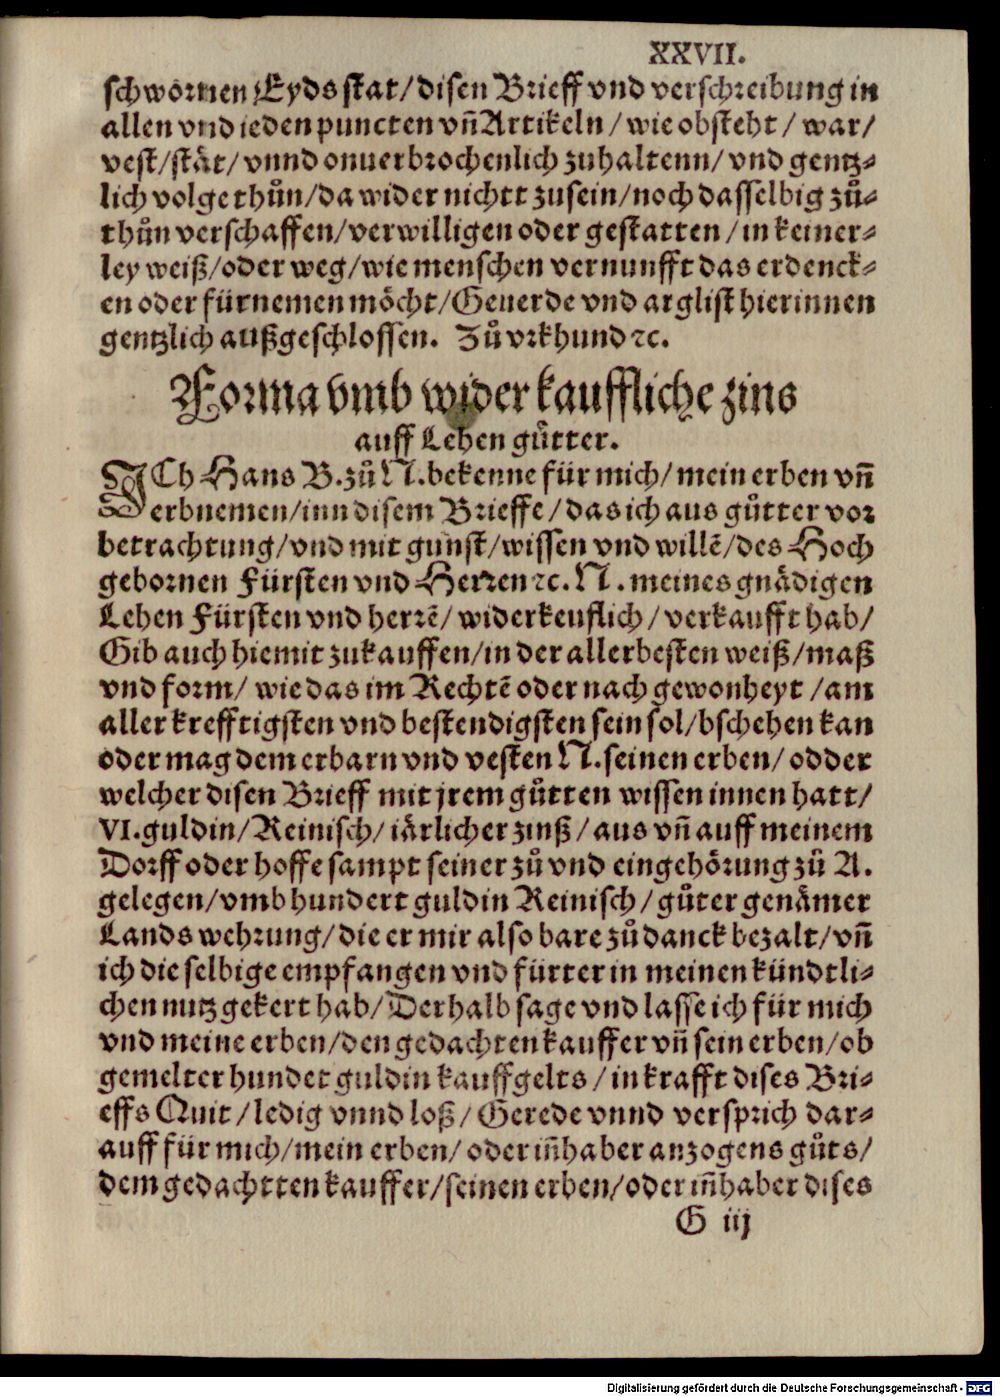 XXVII.
schwornen Eyds stat/disen Brieff vnd verschreibung in
allen vnd ieden puncten vñ Artikeln/wie obsteht/war/
vest/stät/vnnd onuerbrochenlich zuhaltenn/vnd gentz⸗
lich volge thůn/da wider nichtt zusein/noch dasselbig zů⸗
thůn verschaffen/verwilligen oder gestatten/in keiner⸗
ley weiß/oder weg/wie menschen vernunfft das erdenck⸗
en oder fürnemen möcht/Geuerde vnd arglist hierinnen
gentzlich außgeschlossen. Zů vrkhund ꝛc.
Forma vmb wider kauffliche zins
auff Lehen gůtter.
ICh Hans B. zů N. bekenne für mich/mein erben vñ
erbnemen/inn disem Brieffe/das ich aus gůtter vor
betrachtung/vnd mit gunst/wissen vnd willẽ/des Hoch
gebornen Fürsten vnd Herren ꝛc. N. meines gnädigen
Lehen Fürsten vnd herrẽ/widerkeuflich/verkaufft hab/
Gib auch hiemit zukauffen/in der allerbesten weiß/maß
vnd form/wie das im Rechtẽ oder nach gewonheyt/am
aller krefftigsten vnd bestendigsten sein sol/bschehen kan
oder mag dem erbarn vnd vesten N. seinen erben/odder
welcher disen Brieff mit jrem gůtten wissen innen hatt/
VI. guldin/Reinisch/iärlicher zinß/aus vñ auff meinem
Dorff oder hoffe sampt seiner zů vnd eingehörung zů A.
gelegen/vmb hundert guldin Reinisch/gůter genämer
Lands wehrung/die er mir also bare zů danck bezalt/vñ
ich die selbige empfangen vnd fürter in meinen kündtli⸗
chen nutz gekert hab/Derhalb sage vnd lasse ich für mich
vnd meine erben/den gedachten kauffer vñ sein erben/ob
gemelter hundet guldin kauffgelts/in krafft dises Bri⸗
effs Quit/ledig vnnd loß/Gerede vnnd versprich dar⸗
auff für mich/mein erben/oder iñhaber anzogens gůts/
dem gedachtten kauffer/seinen erben/oder iñhaber dises
G iij
Digitalisierung gefördert durch die Deutsche Forschungsgemeinschaft - DFG